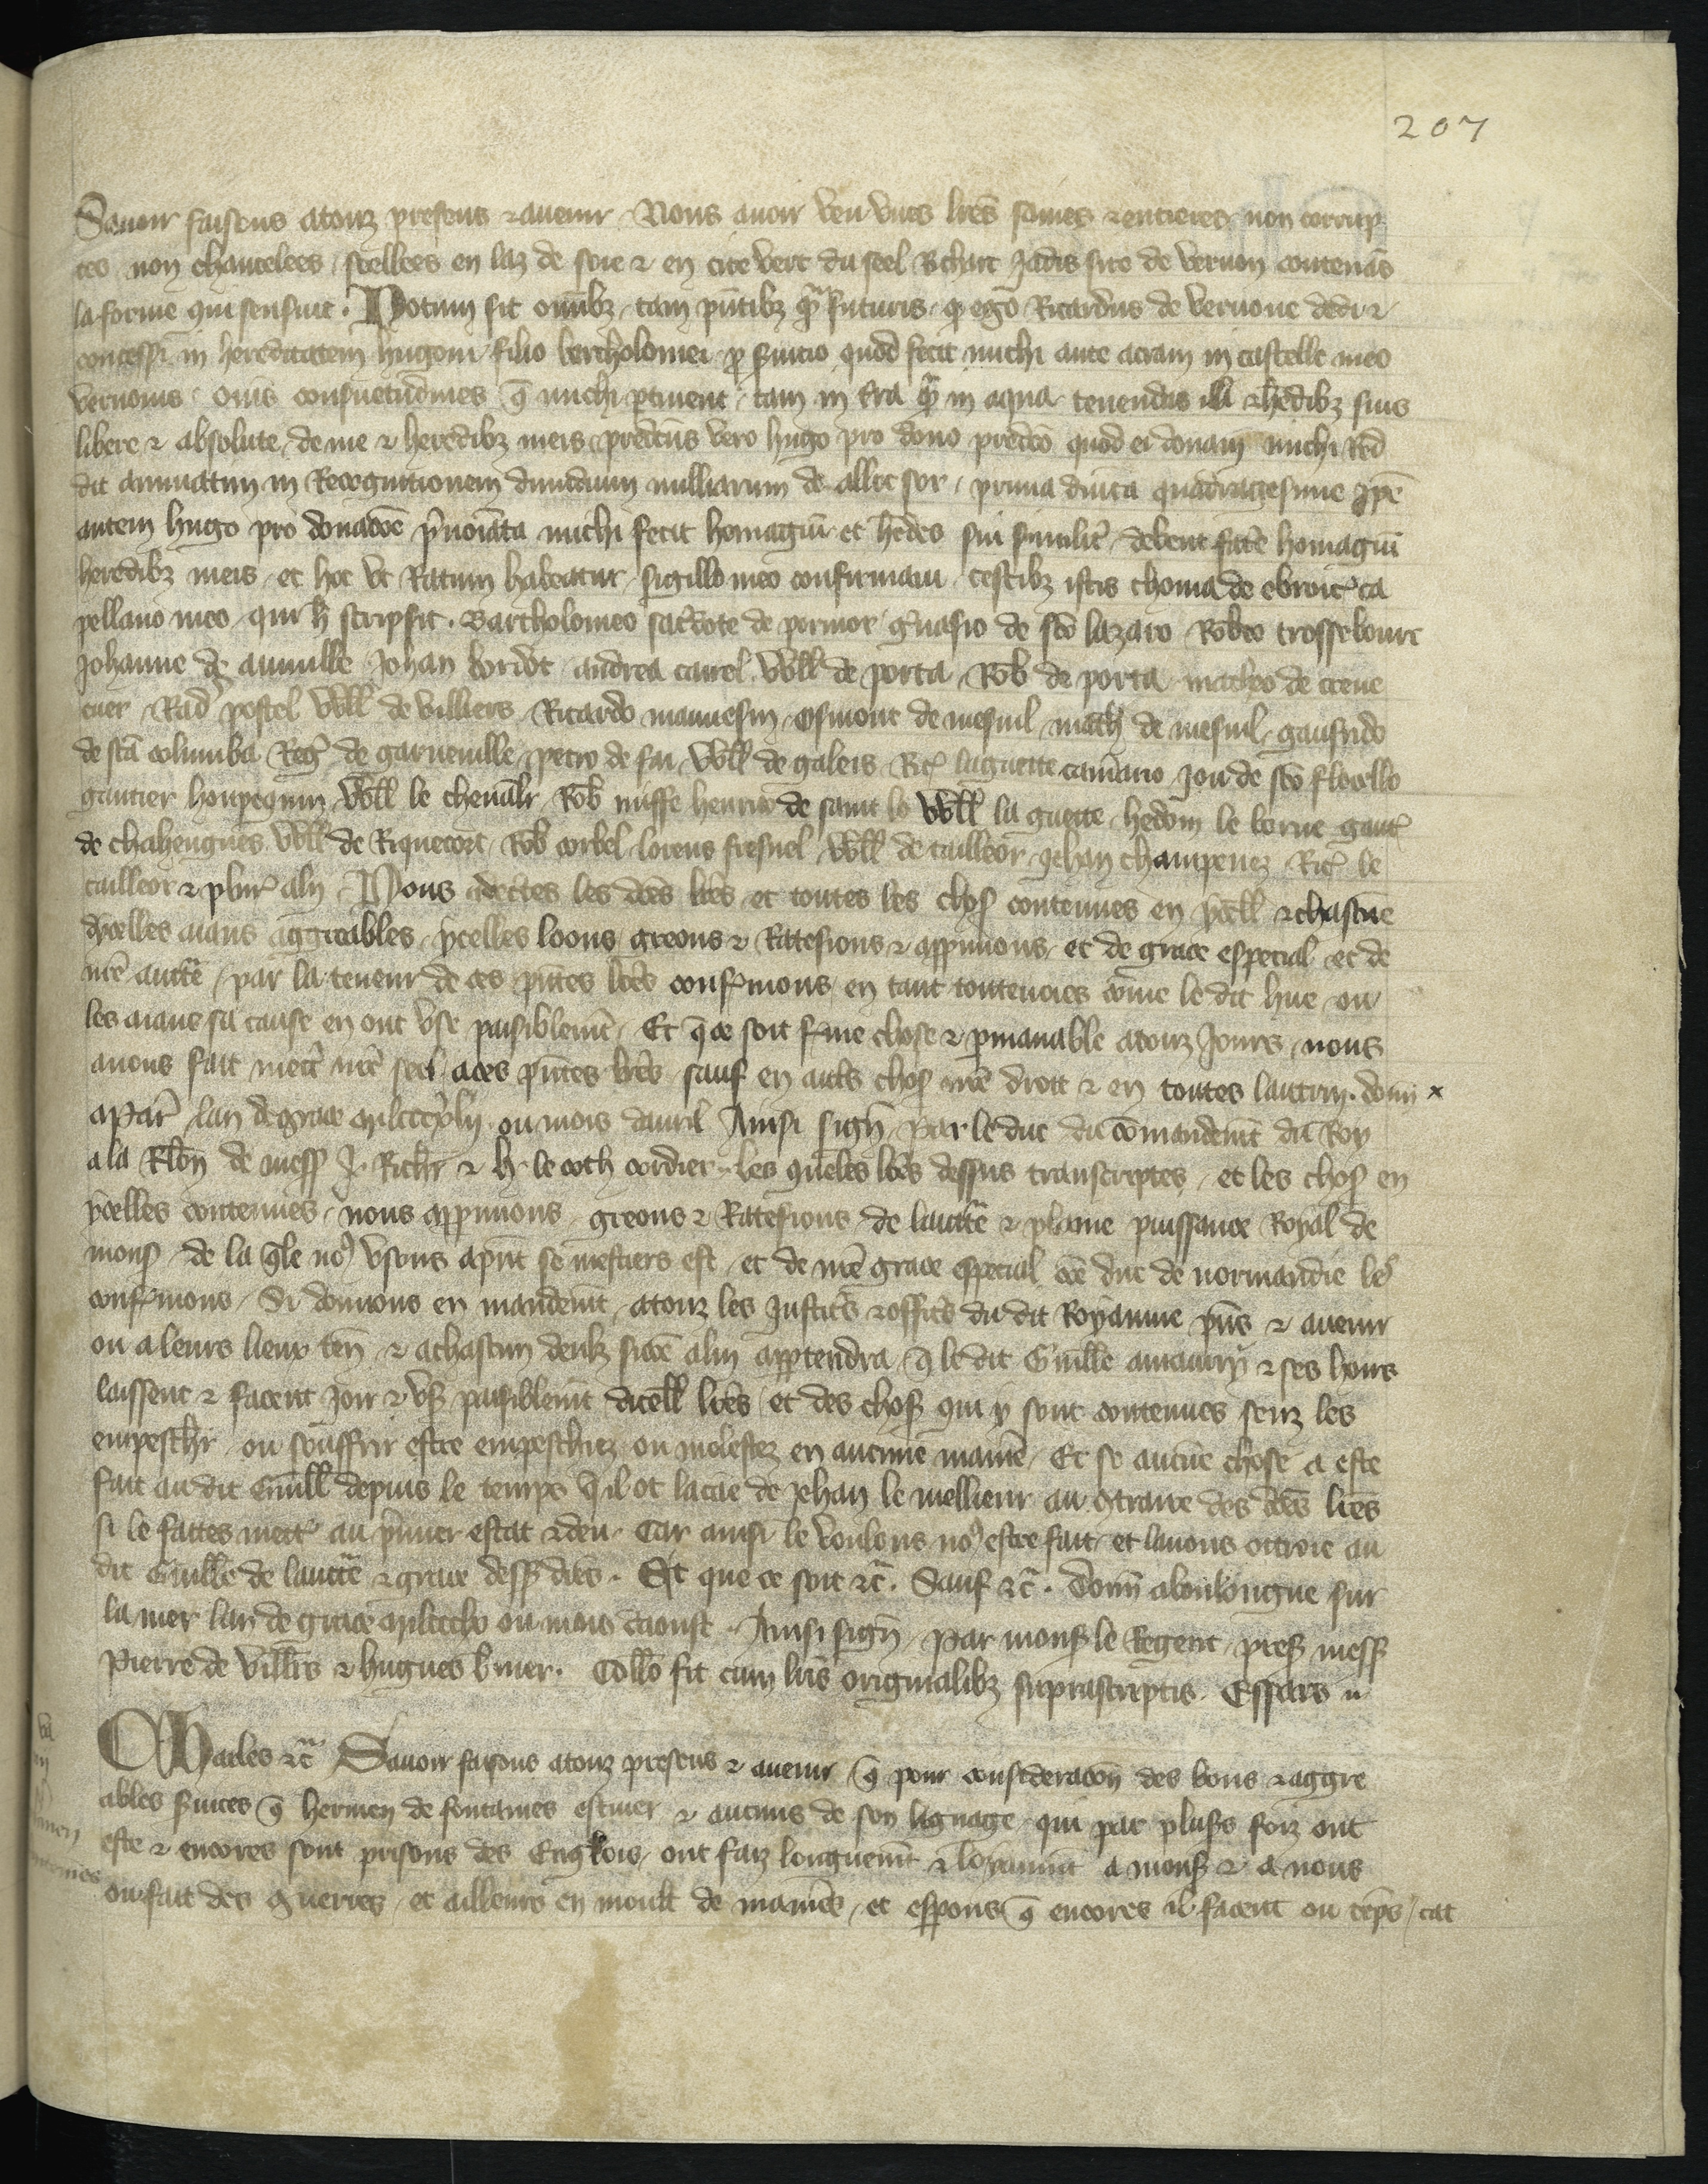 207
Savoir faisons atouz presens & avenir Nous avoir veu unes lres saines & entieres non corrup
tes non chancelees, seellees en laz de soie & en cire vert du seel Richart jadis sire de vernon contenans
la forme qui sensuit. Notum sit omibz tam pntibz qm futuris q ego Ricardus de vernone dedi &
concessi in hereditatem hugoni filio bertholomei p suicio quod fecit michi ante acram in castello meo
vernonis oms consuetudines q michi ptinent tam in tra qm in aqua tenendas illi & hedibz suis
libere & absolute de me & heredibz meis, predcus vero hugo pro dono predco quod ei donavi michi Red
dit annuatim in Recognitionem duudium milliarum de allec sor, prima dnica quadragesime Ipe
autem hugo pro donacoe pnoiata michi fecit homagiu et hedes sui similit debent face homagiu
heredibz meis, et hoc ut Ratum habeatur sigillo meo confirmavi, testibz istis thoma de ebroic ca
pellano meo, qui h scripsit. Bartholomeo sacdote de permor gvasio de sco lazaro Robto trossebout
Johanne de auville Johan bordet andrea caurel Will de porta Rob de porta matheo de creve
cuer, Rad postel Will de villiers Ricardo mauvesin Osmont de mesnil math de mesnil gaufrido
de sca columba Reg de garneville petro de sai Will de galeis Ric laguette camario Jou de sco floello
gautier houpequin Will le chevalr Rob miffe henrico de saint lo Will la guette hedoin le borne gaut
de chahengnes Will de Riquecort Rob corbel lorens fresnel Will de tailleor Jehan champenez Ric le
tailleor & plur alii. Nous adectes les dces lres et toutes les chos contenues en ycell & chascune
dycelles aians aggreables, ycelles loons greons & Ratefions & appvons, et de grace especial et de
nre aucte par la teneur de ces pntes lres confmons, en tant toutevoies comme le dit hue ou
les aians sa cause en ont use paisiblemt, Et q ce soit fme chose & pmanable atouz jours, nous
avons fait mectr nre seel aces pntes lres sauf en auts chos nre droit & en toutes lautrui. donn x
aPar lan degrace milcccxlvij ou mois davril Ainsi sign Par le duc du comandemt du Roy
ala Relon de mess J. Richr & h. le coth cordier. Les queles lres dessus transcriptes, et les chos en
ycelles contenues, nous appvons greons & Ratefions de laucte & plaine puissance Royal de
mons de la qle no usons apnt se mestiers est, et de nre grace especial coe duc de normandie les
confmons, Si donnons en mandemt atouz les Justics & offics du dit Royaume pns & avenir
ou a leurs lieux ten & achascun deulz sicoe alui apptendra, q le dit Guille amaury & ses hoirs
laissent & facent joir & us paisiblemt dicell lres et des chos qui y sont contenues senz les
empeschr ou souffrir estre empeschiez ou molestez en aucune manie, Et se aucune chose a este
fait audit Guill depuis le temps qil ot lacae de Jehan le mellieur au otraire des dces lres
si le faites mett au pmier estat & deu, Car ainsi le voulons no estre fait et lavons ottroie au
dit Guille de laucte & grace desss dces. Et que ce soit &c. Sauf &c. Donn aboulongne sur
la mer lan de grace milccclx ou mois daoust. Ainsi sign, Par mons le Regent, pres mess
Pierre de Villrs & hugues bnier. Collo fit cum lris originalibz suprascriptis. Essars
Charles &c Savoir fasons atouz presens & avenir q pour consideracon des bons & aggre
ables suices q hermen de fontaines escuier & aucuns de son lignage qui par pluss foiz ont
este & encores sont prisons des Englois, ont faiz longuemt & loyaumt a mons & a nous
ou fait des guerres, et ailleurs en moult de manies, et espons q encores il facent ou teps, cat